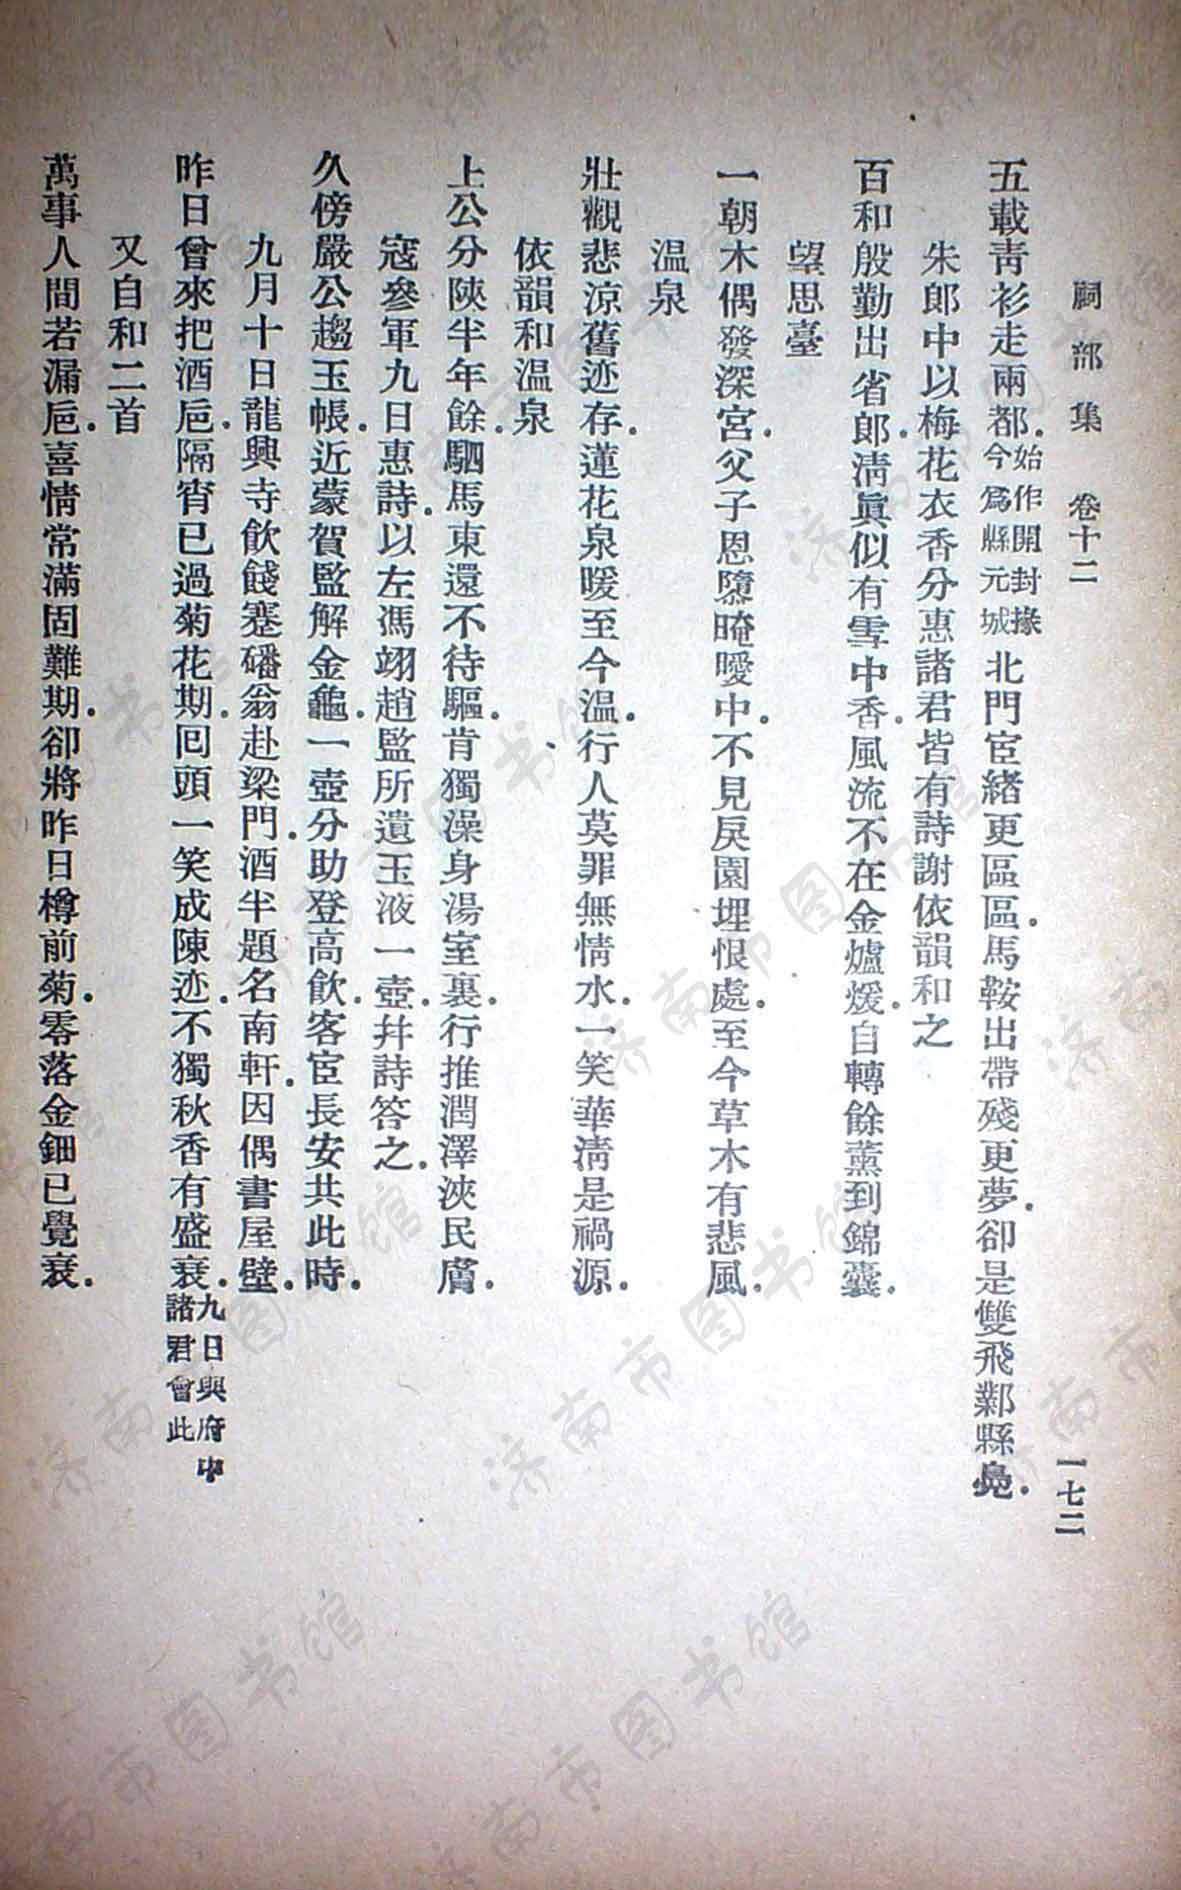 祠部集 卷十二 一七二
五載靑衫走兩都.始作開封掾今爲縣元城北門宦緖更區區.馬鞍出帶殘更夢.卻是雙飛鄴縣鳧.
朱郎中以梅花衣香分惠諸君皆有詩謝依韻和之
百和殷勤出省郎.淸眞似有雪中香.風流不在金爐煖.自轉餘薰到錦囊.
望思臺
一朝木偶發深宮.父子恩隳晻曖中.不見戾園埋恨處.至今草木有悲風.
溫泉
壯觀悲涼舊迹存.蓮花泉暖至今溫.行人莫罪無情水.一笑華淸是禍源.
依韻和溫泉
上公分陝半年餘.駟馬東還不待驅.肯獨澡身湯室裏.行推潤澤浹民膚.
寇參軍九日惠詩.以左馮翊趙監所遺玉液一壺.幷詩答之.
久傍嚴公趨玉帳.近蒙賀監解金龜.一壺分助登高飮.客宦長安共此時.
九月十日龍興寺飮餞蹇磻翁赴梁門.酒半題名南軒.因偶書屋壁.
昨日曾來把酒巵.隔宵已過菊花期.囘頭一笑成陳迹.不獨秋香有盛衰.九日與府中諸君會此
又自和二首
萬事人間若漏巵.喜情常滿固難期.卻將昨日樽前菊.零落金鈿已覺衰.
济南市图书馆